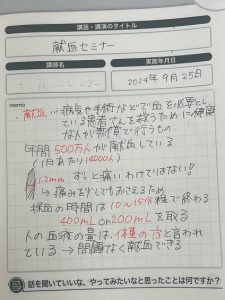 講話・講演のタイトル
献血セミナー
講師名
実施年月日
2024年9月25日
memo
・献血…病気や手術などで血を必要とし
ている患者さんを救うために健康
な人が無償で行うもの
年間500万人が献血している
(1日あたり14000人)
1.2mm ずっと痛いわけではない!
→痛みを少しでもおさえるため
採血の時間は10~15分程で終わる
400mLor200mLを取る
人の血液の量は、体重の
と言われ
ている→問題なく献血できる
話を聞いていいな、やってみたいなと思ったことは何ですか?